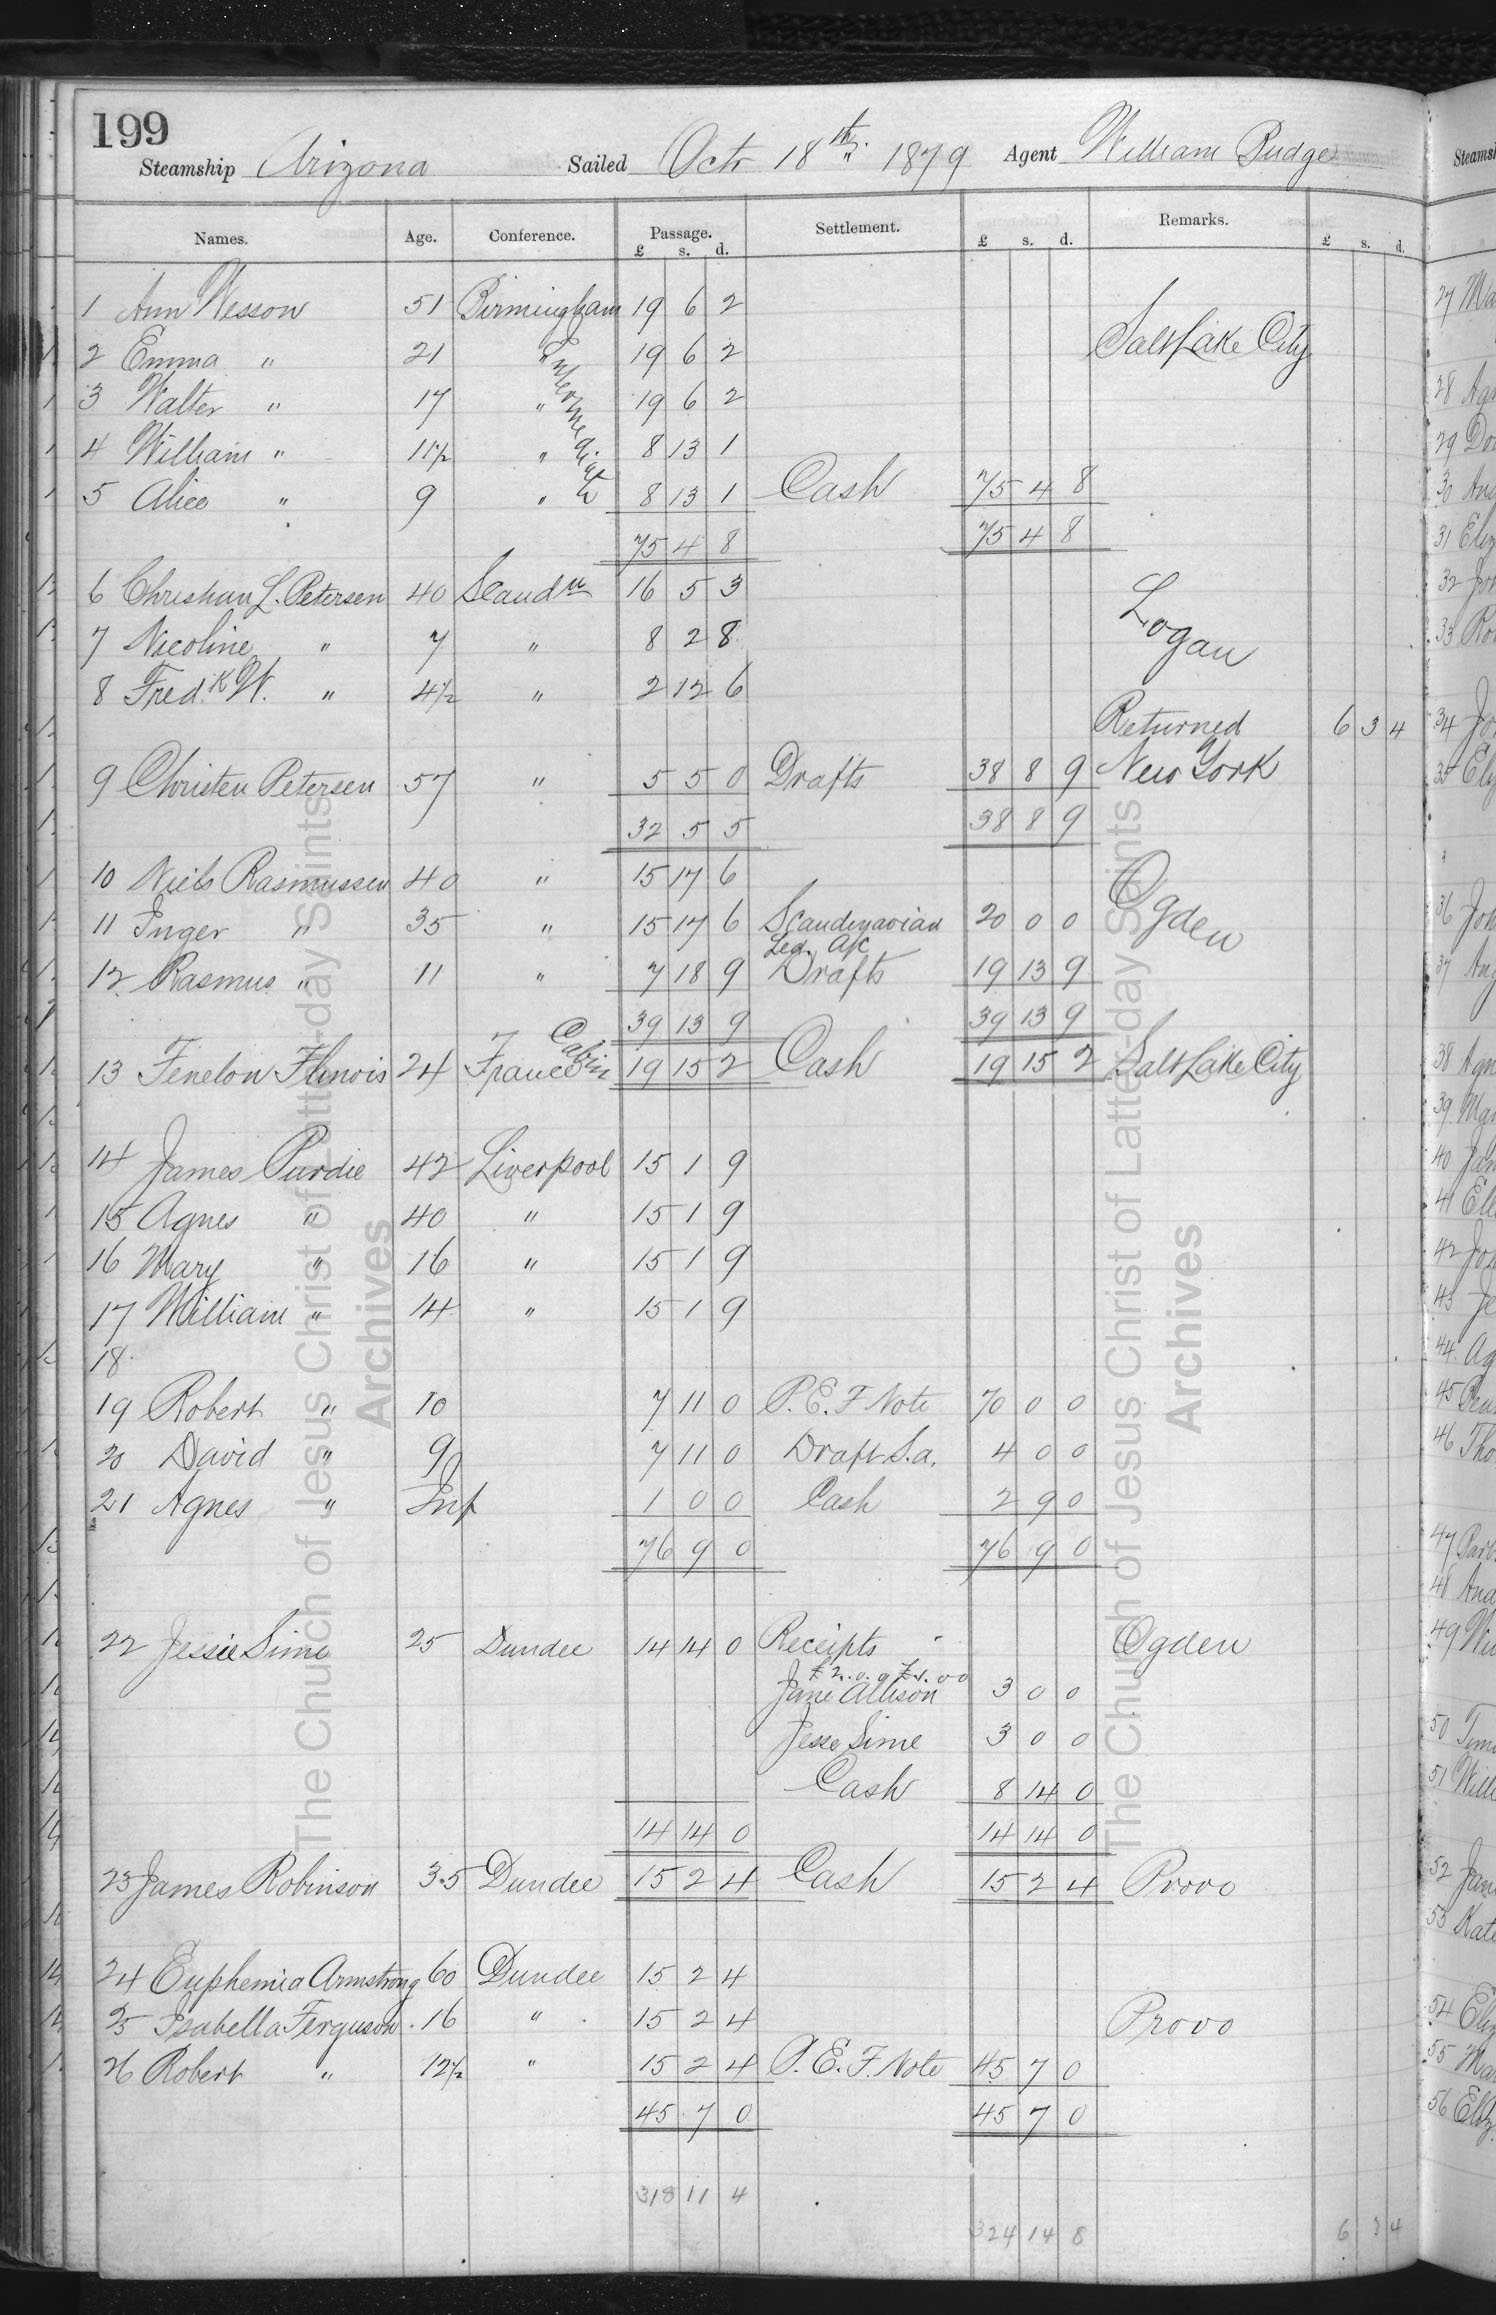 199
Steamship Arizona Sailed Octr 18th 1879 Agent William Budge
Names. Age. Conference. Passage. £ s. d. Settlement. £ s. d. Remarks. £ s. d.
1 Ann Wesson 51 Birmingham 19 6 2
Salt Lake City
2 Emma " 21 " 19 6 2
Intermediate
3 Walter " 17 " 19 6 2
4 William " 11½ " 8 13 1
5 Alice " 9 " 8 13 1 Cash 75 4 8
75 4 8 75 4 8
6 Christian L. Petersen 40 Scandn 16 5 3
Logan
7 Nicoline " 7 " 8 2 8
8 Fredk W. " 4½ " 2 12 6
Returned 6 3 4
9 Christen Petersen 57 " 5 5 0 Drafts 38 8 9 New York
32 5 5 38 8 9
10 Niels Rasmussen 40 " 15 17 6
Ogden
11 Inger " 35 " 15 17 6 Scandinavian 20 0 0
Led. A/c
12 Rasmus " 11 " 7 18 9 Drafts 19 13 9
39 13 9 39 13 9
Cabin
13 Fenelon 24 France 19 15 2 Cash 19 15 2 Salt Lake City
14 James Purdie 42 Liverpool 15 1 9
15 Agnes " 40 " 15 1 9
16 Mary " 16 " 15 1 9
17 William " 14 " 15 1 9
18
19 Robert " 10 7 11 0 P.E.F Note 70 0 0
20 David " 9 7 11 0 Draft S.a. 4 0 0
21 Agnes " Inf 1 0 0 Cash 2 9 0
76 9 0 76 9 0
22 Jessie Sime 25 Dundee 14 14 0 Receipts Ogden
Jane Allison 3 0 0
Jesse Sime 3 0 0
Cash 8 14 0
14 14 0 14 14 0
23 James Robinson 35 Dundee 15 2 4 Cash 15 2 4 Provo
24 Euphemia Armstrong 60 Dundee 15 2 4
25 Isabella Ferguson 16 " 15 2 4 Provo
26 Robert " 12½ " 15 2 4 P.E.F. Note 45 7 0
45 7 0 45 7 0
318 11 4
324 14 8 6 3 4
The Church of Jesus Christ of Latter-day Saints
Archives
The Church of Jesus Christ of Latter-day Saints
Archives